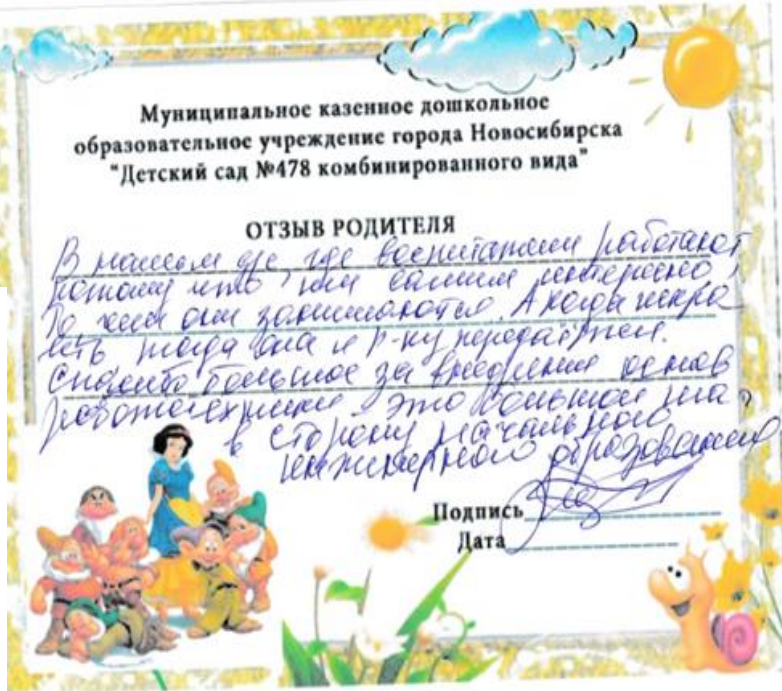 Муниципальное казенное дошкольное
образовательное учреждение города Новосибирска
"Детский сад №478 комбинированного вида"
ОТЗЫВ РОДИТЕЛЯ
В нашем где воспитатели работают
потому что, им самим интересно,
то чем они занимаются. А когда искра
есть тогда она и р-ку передаётся.
Спасибо большое за внедрение основ
робототехники - это большой шаг
в сторону начального
инженерного образования
Подпись
Дата